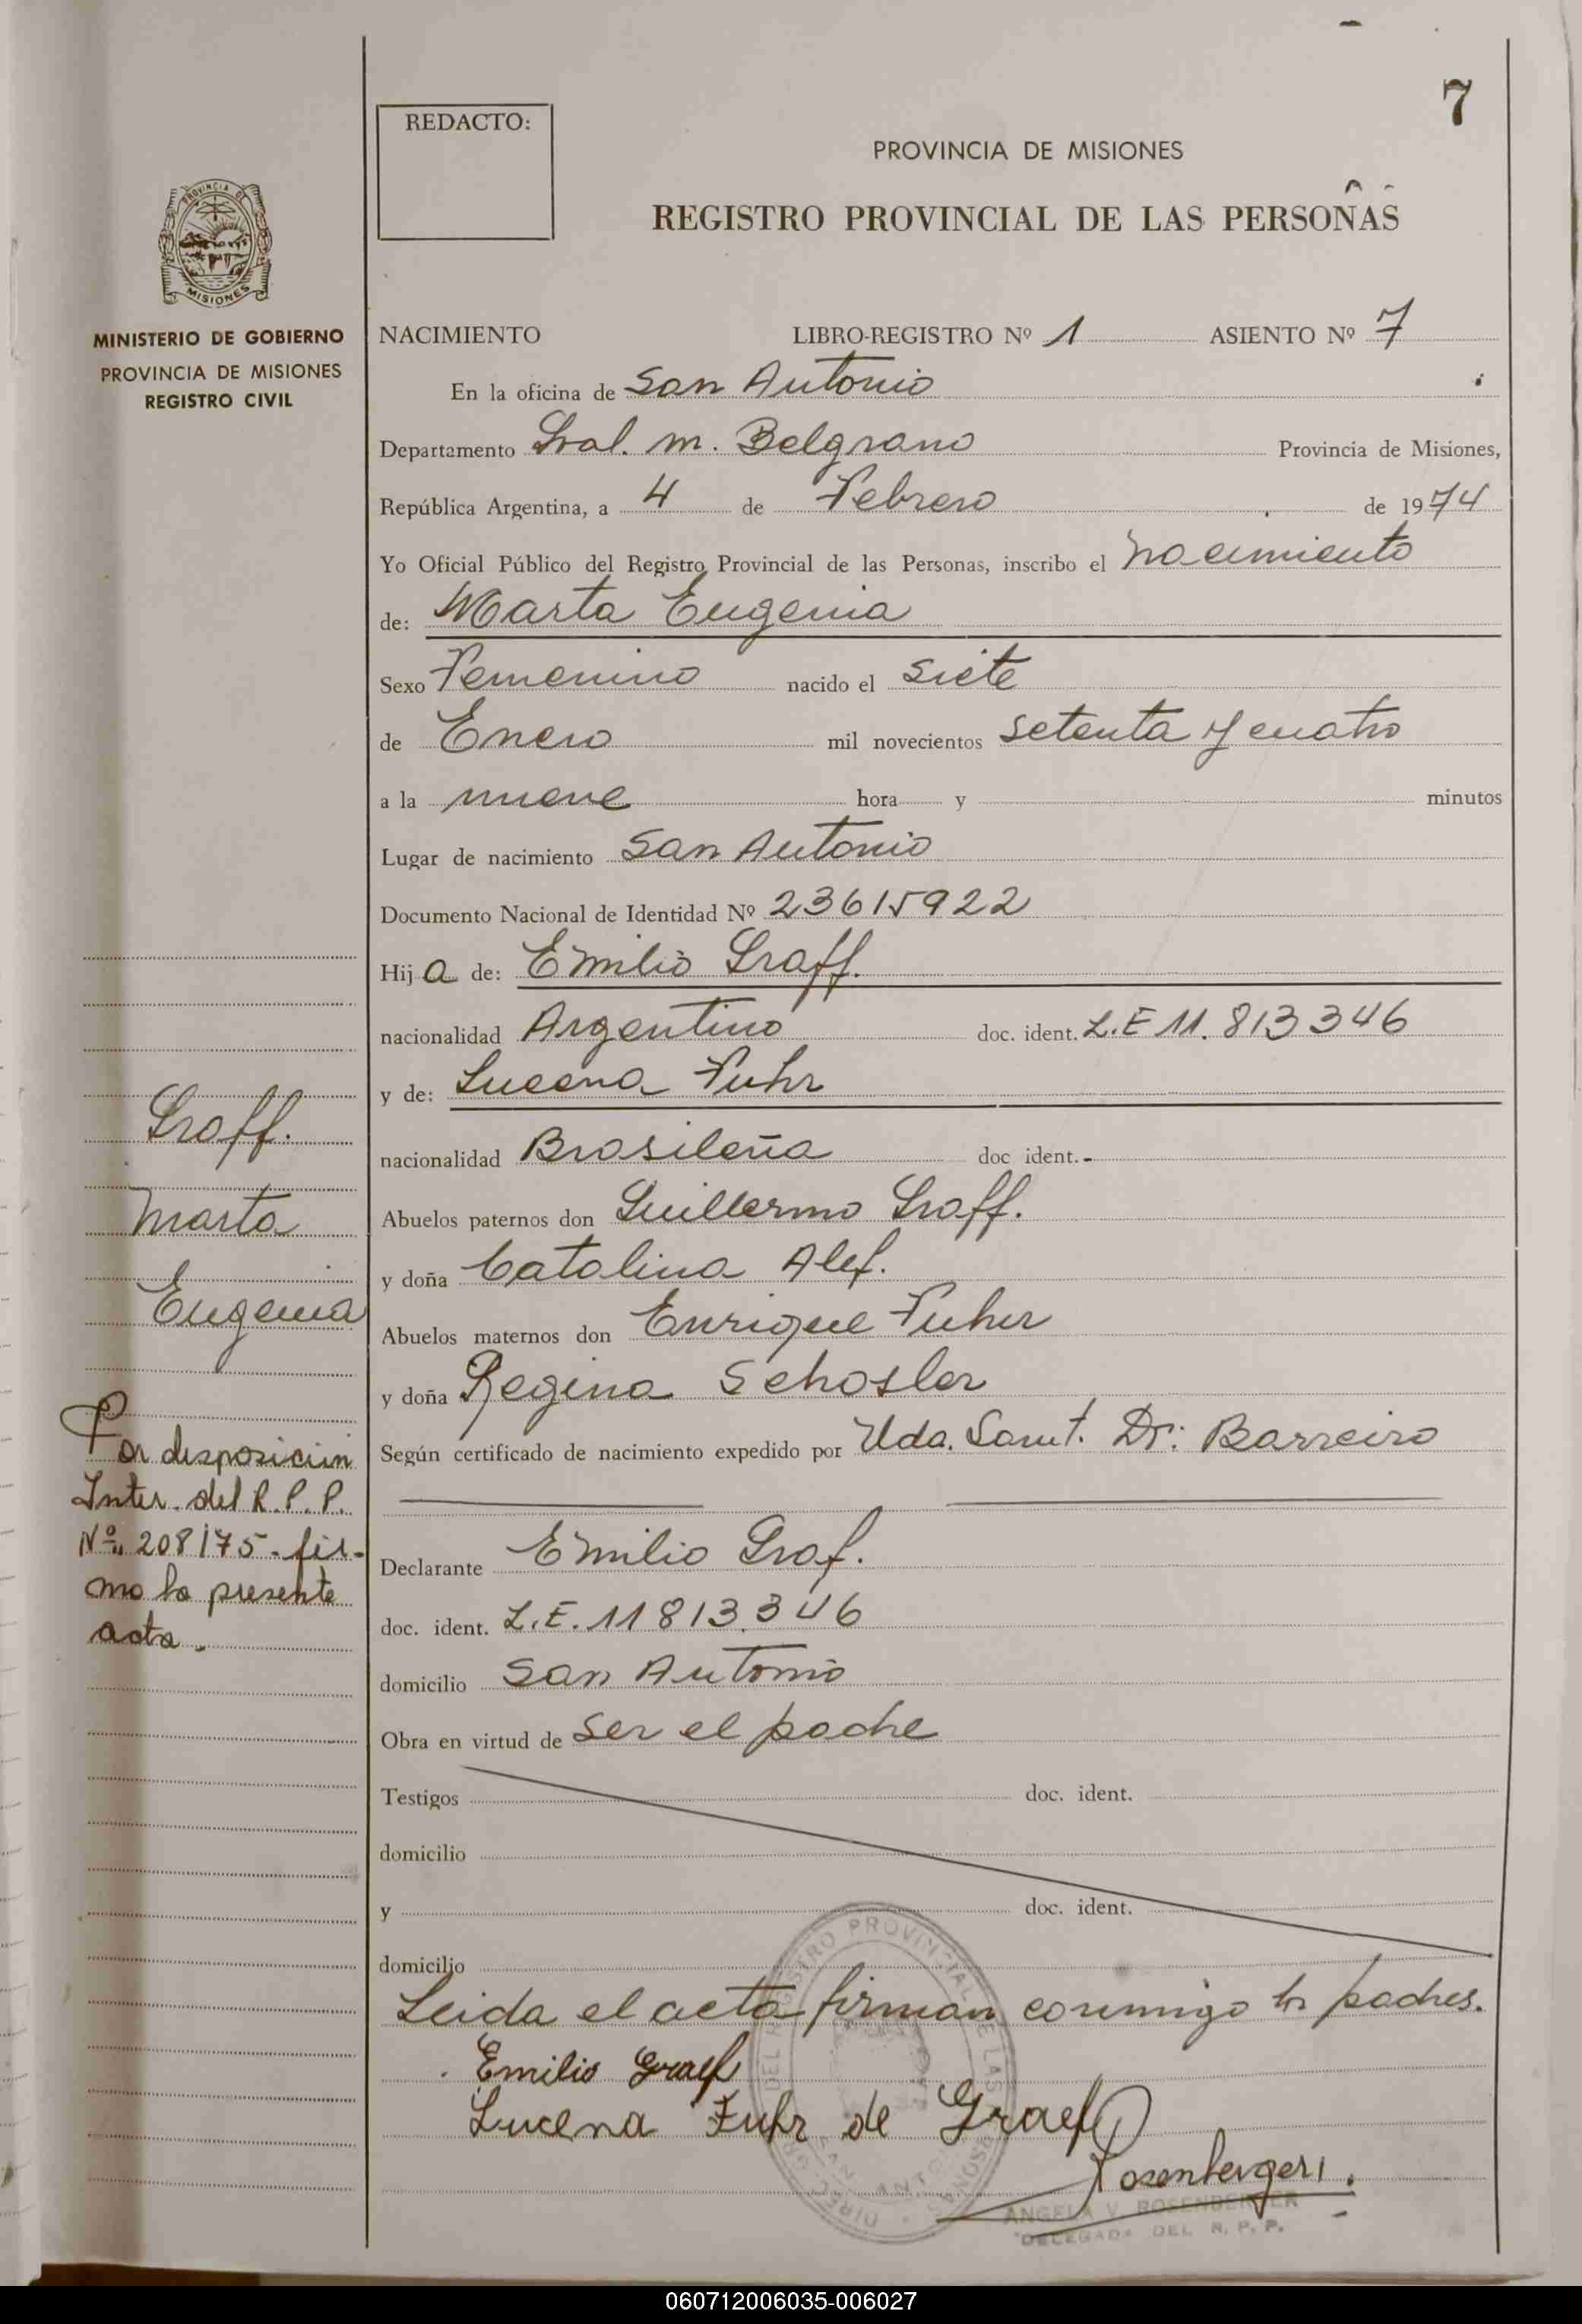 7
REDACTO:
PROVINCIA DE MISIONES
REGISTRO PROVINCIAL DE LAS PERSONAS
PROVINCIA DE
MISIONES
MINISTERIO DE GOBIERNO
PROVINCIA DE MISIONES
REGISTRO CIVIL
NACIMIENTO LIBRO-REGISTRO Nº 1 ASIENTO Nº 7
En la oficina de San Antonio
Departamento Gral. M. Belgrano Provincia de Misiones,
República Argentina, a 4 de Febrero de 1974
Yo Oficial Público del Registro Provincial de las Personas, inscribo el nacimiento
de: Marta Eugenia
Sexo Femenino nacido el siete
de Enero mil novecientos setenta y cuatro
a la nueve hora y minutos
Lugar de nacimiento San Antonio
Documento Nacional de Identidad Nº 23615922
Hija de: Emilio Graff.
nacionalidad Argentino doc. ident. L.E 11.813346
y de: Lucena Fuhr
nacionalidad Brasileña doc ident. -
Abuelos paternos don Guillermo Graff.
y doña Catalina Alef.
Abuelos maternos don Enrique Fuher
y doña Regina Schosler
Según certificado de nacimiento expedido por Uda. Sanit. Dr: Barreiro
Declarante Emilio Graf.
doc. ident. L.E. 11813.346
domicilio San Antonio
Obra en virtud de ser el padre
Testigos doc. ident.
domicilio
y doc. ident.
domicilio
Leida el acta firman conmigo los padres.
Emilio Graef
Lucena Fuhr de Graef
Rosenberger
ANGELA V. ROSENBERGER
DELEGADA DEL R. P. P.
Graff.
Marta
Eugenia
Por disposición
Inter. del R. P. P.
Nº 208/75. fir-
mo la presente
acta.
060712006035-006027